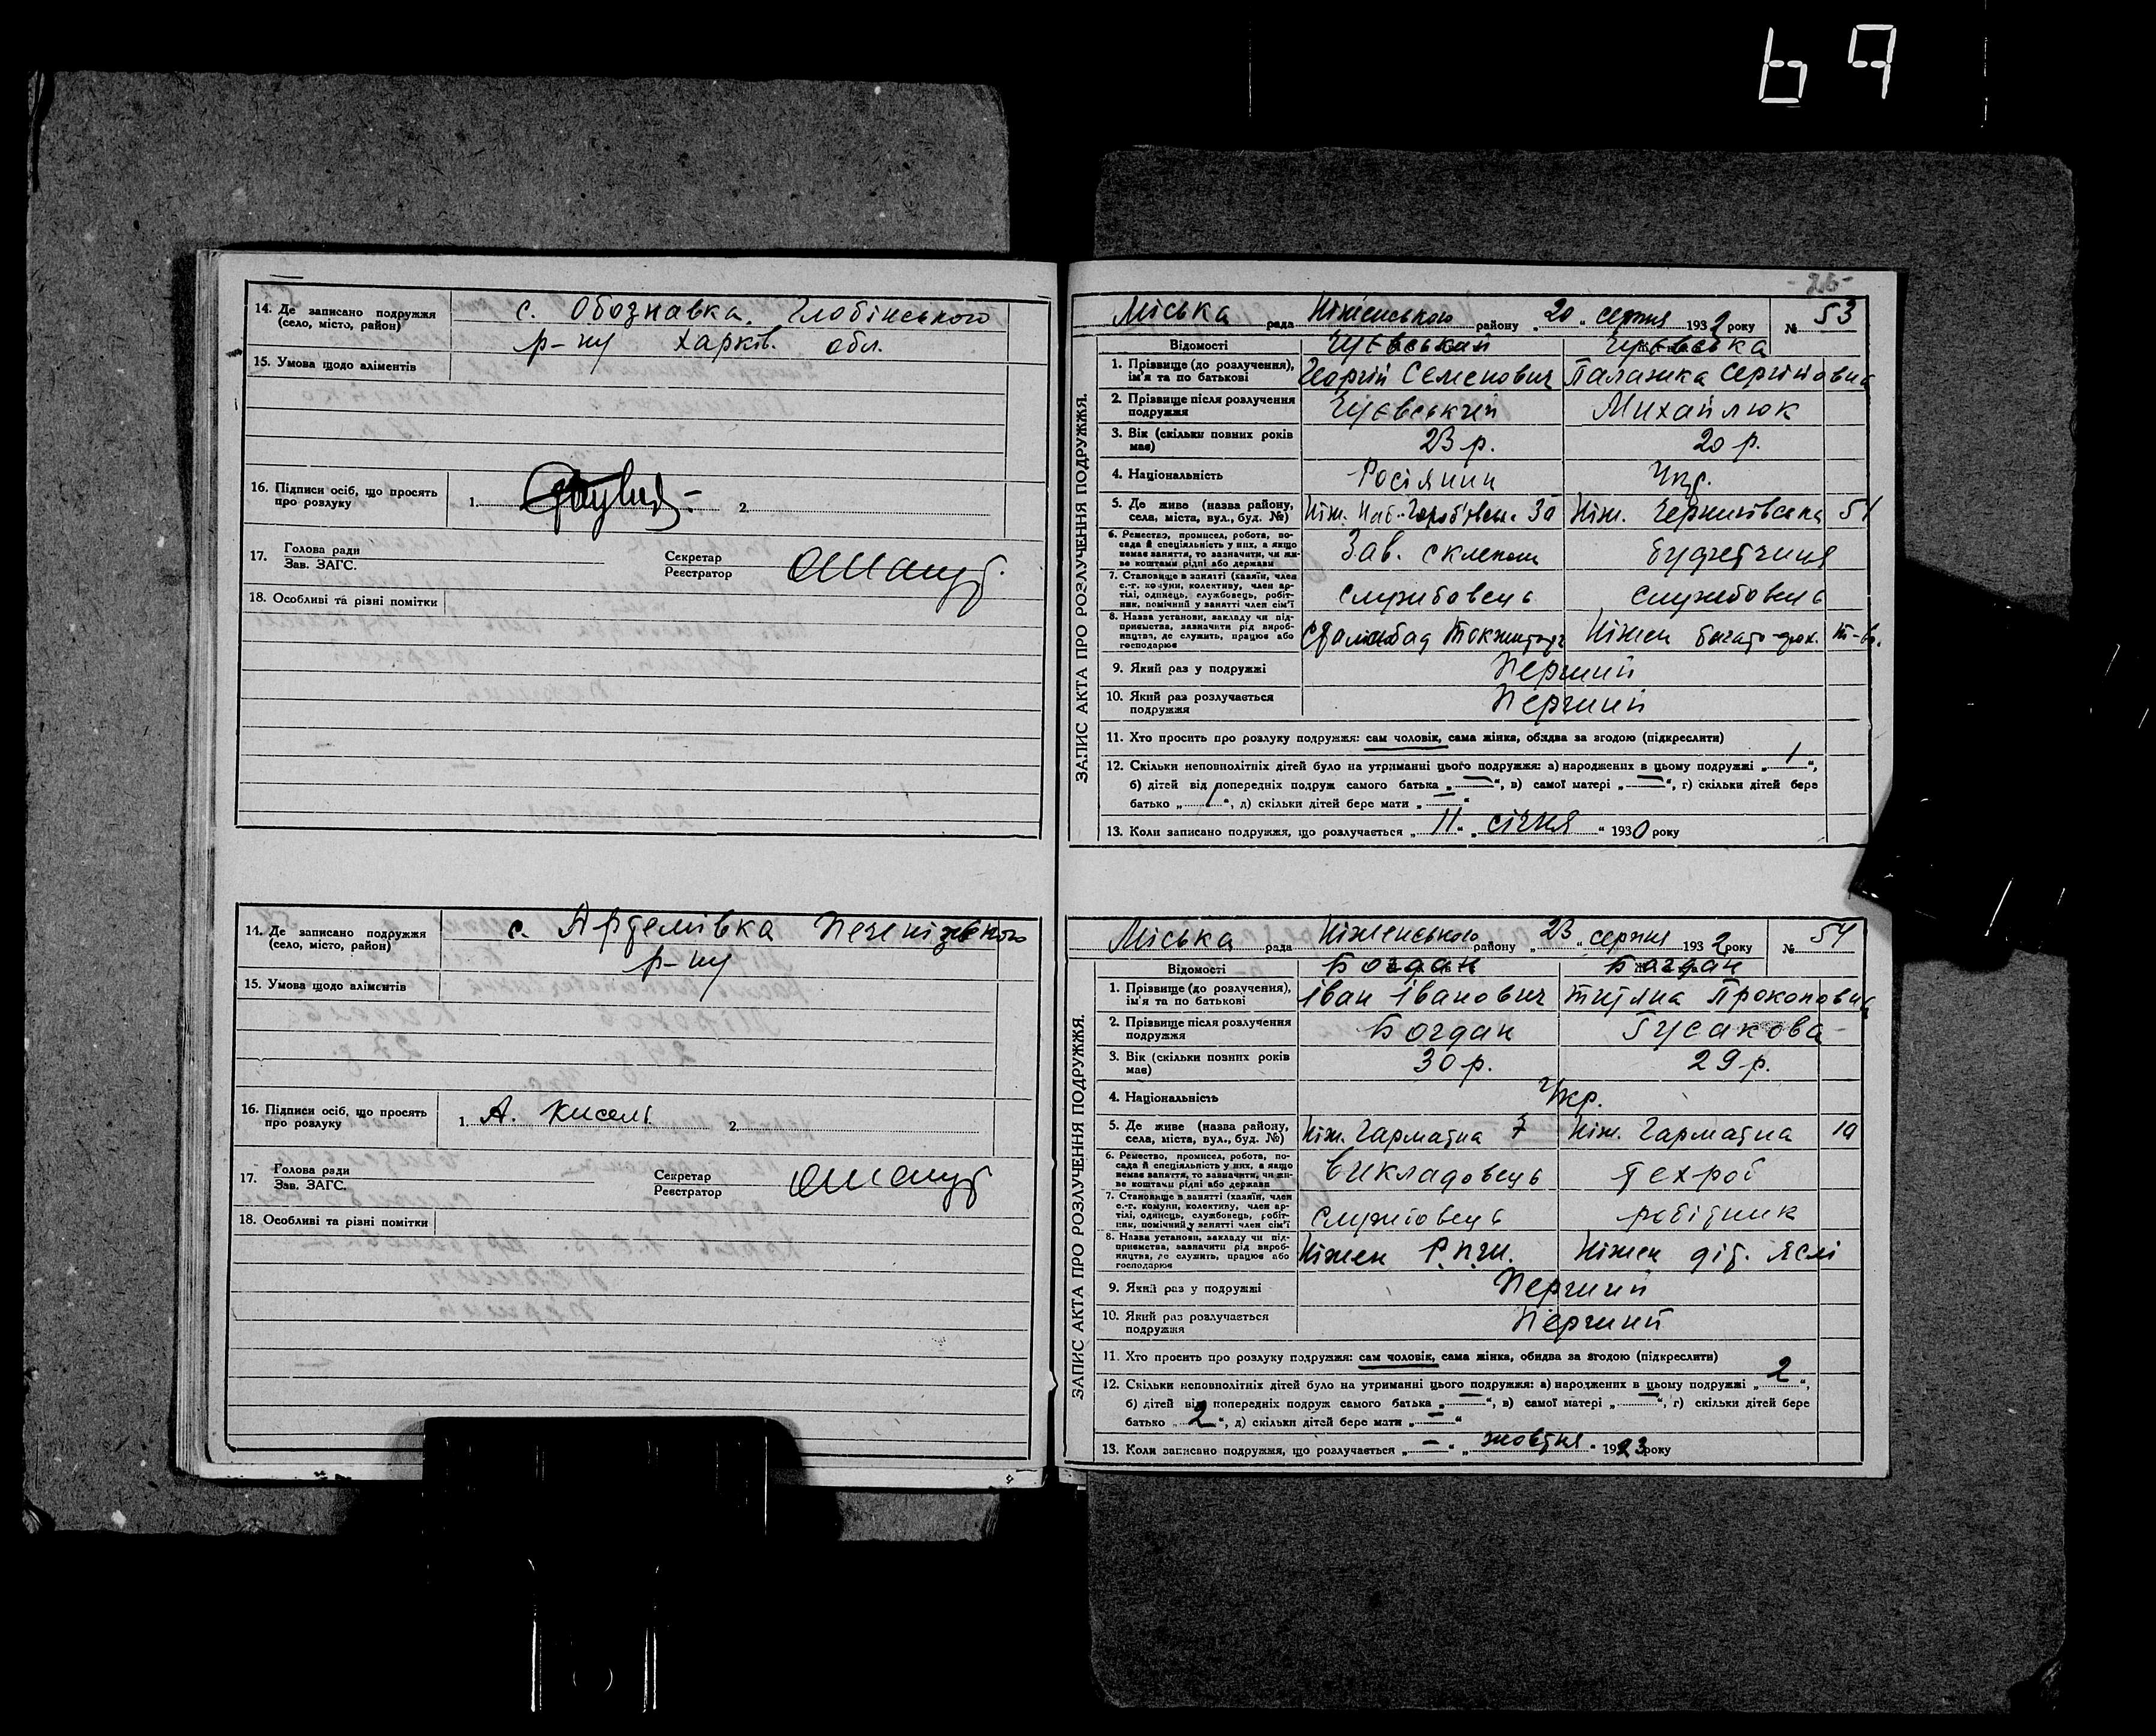 ь 9
14. Де записано подружжя
(село, місто, район)
с. Обознавка. Глобінського
р-ну харків. обл.
15. Умова щодо аліментів
16. Підписи осіб, що просять
про розлуку
1. 2.
17. Голова ради
Зав. ЗАГС.
Секретар
Реєстратор
18. Особливі та різні помітки
14. Де записано подружжя
(село, місто, район)
с. Артемівка Печенізького
р-ну
15. Умова щодо аліментів
16. Підписи осіб, що просять
про розлуку
1. А. Кисель 2.
17. Голова ради
Зав. ЗАГС.
Секретар
Реєстратор
18. Особливі та різні помітки
-26-
ЗАПИС АКТА ПРО РОЗЛУЧЕННЯ ПОДРУЖЖЯ.
Міська рада Ніженського району „20“ серпня 1932 року № 53
Відомості Чуєвський Чуєвська
1. Прізвище (до розлучення),
ім'я та по батькові
Георгій Семенович Палажка Сергіївна
2. Прізвище після розлучення
подружжя
Чуєвський Михайлюк
3. Вік (скільки повних років
має)
23 р. 20 р.
4. Національність Росіянин Укр.
5. Де живе (назва району,
села, міста, вул., буд. №)
Ніж. Наб. 30 Ніж. Чернігівська 51
6. Ремество, промисел, робота, по-
сада й спеціяльність у них, а якщо
немає заняття, то зазначити, чи жи-
ве коштами рідні або держави
Зав. склепом Буфетчиця
7. Становище в занятті (хазяїн, член
с.-г. комуни, колективу, член ар-
тілі, одинець, службовець, робіт-
ник, помічний у занятті член сім'ї
службовець службовець
8. Назва установи, закладу чи під-
приємства, зазначити рід вироб-
ництва, де служить, працює або
господарює
Ніжен багато-крам. т-во.
9. Який раз у подружжі Перший
10. Який раз розлучається
подружжя
Перший
11. Хто просить про розлуку подружжя: сам чоловік, сама жінка, обидва за згодою (підкреслити)
12. Скільки неповнолітніх дітей було на утриманні цього подружжя: а) народжених в цьому подружжі „1“,
б) дітей від попередніх подруж самого батька „—“, в) самої матері „—“, г) скільки дітей бере
батько „1“, д) скільки дітей бере мати „—“
13. Коли записано подружжя, що розлучається „11“ „січня“ 1930 року
ЗАПИС АКТА ПРО РОЗЛУЧЕННЯ ПОДРУЖЖЯ.
Міська рада Ніженського району „23“ серпня 1932 року № 54
Відомості Богдан Богдан
1. Прізвище (до розлучення),
ім'я та по батькові
Іван Іванович Титяна Прокоповна
2. Прізвище після розлучення
подружжя
Богдан Гусакова
3. Вік (скільки повних років
має)
30 р. 29 р.
4. Національність Укр.
5. Де живе (назва району,
села, міста, вул., буд. №)
Ніж. Гарматна 7 Ніж. Гарматна 10
6. Ремество, промисел, робота, по-
сада й спеціяльність у них, а якщо
немає заняття, то зазначити, чи жи-
ве коштами рідні або держави
Викладовець техроб
7. Становище в занятті (хазяїн, член
с.-г. комуни, колективу, член ар-
тілі, одинець, службовець, робіт-
ник, помічний у занятті член сім'ї
службовець робітник
8. Назва установи, закладу чи під-
приємства, зазначити рід вироб-
ництва, де служить, працює або
господарює
Ніжен Р.П.Ш. Ніжен діт. яслі
9. Який раз у подружжі Перший
10. Який раз розлучається
подружжя
Перший
11. Хто просить про розлуку подружжя: сам чоловік, сама жінка, обидва за згодою (підкреслити)
12. Скільки неповнолітніх дітей було на утриманні цього подружжя: а) народжених в цьому подружжі „2“,
б) дітей від попередніх подруж самого батька „—“, в) самої матері „—“, г) скільки дітей бере
батько „2“, д) скільки дітей бере мати „—“
13. Коли записано подружжя, що розлучається „—“ „жовтня“ 1923 року